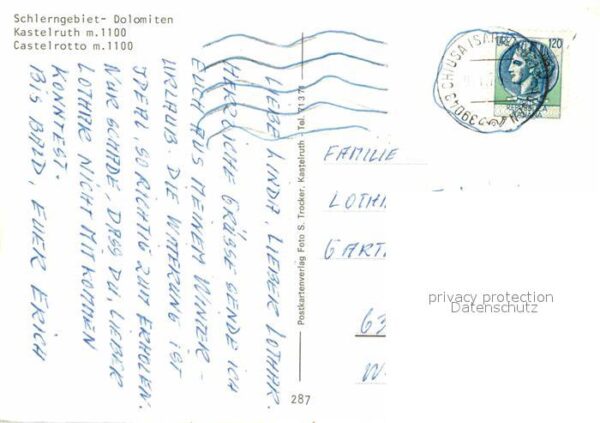 Schlerngebiet- Dolomiten
Kastelruth m.1100
Castelrotto m.1100
LIEBE LINDA, LIEBER LOTHAR.
HERRLICHE GRÜSSE SENDE ICH
EUCH AUS MEINEM WINTER-
URLAUB. DIE WITTERUNG IST
IDEAL SO RICHTIG ZUM ERHOLEN.
NUR SCHADE, DASS DU, LIEBER
LOTHAR NICHT MITKOMMEN
KONNTEST.
BIS BALD, EUER ERICH
Postkartenverlag Foto S. Trocker, Kastelruth - Tel. 71371
287
39042 CHIUSA
120
FAMILIE
LOTH
GART
63
W
privacy protection
Datenschutz